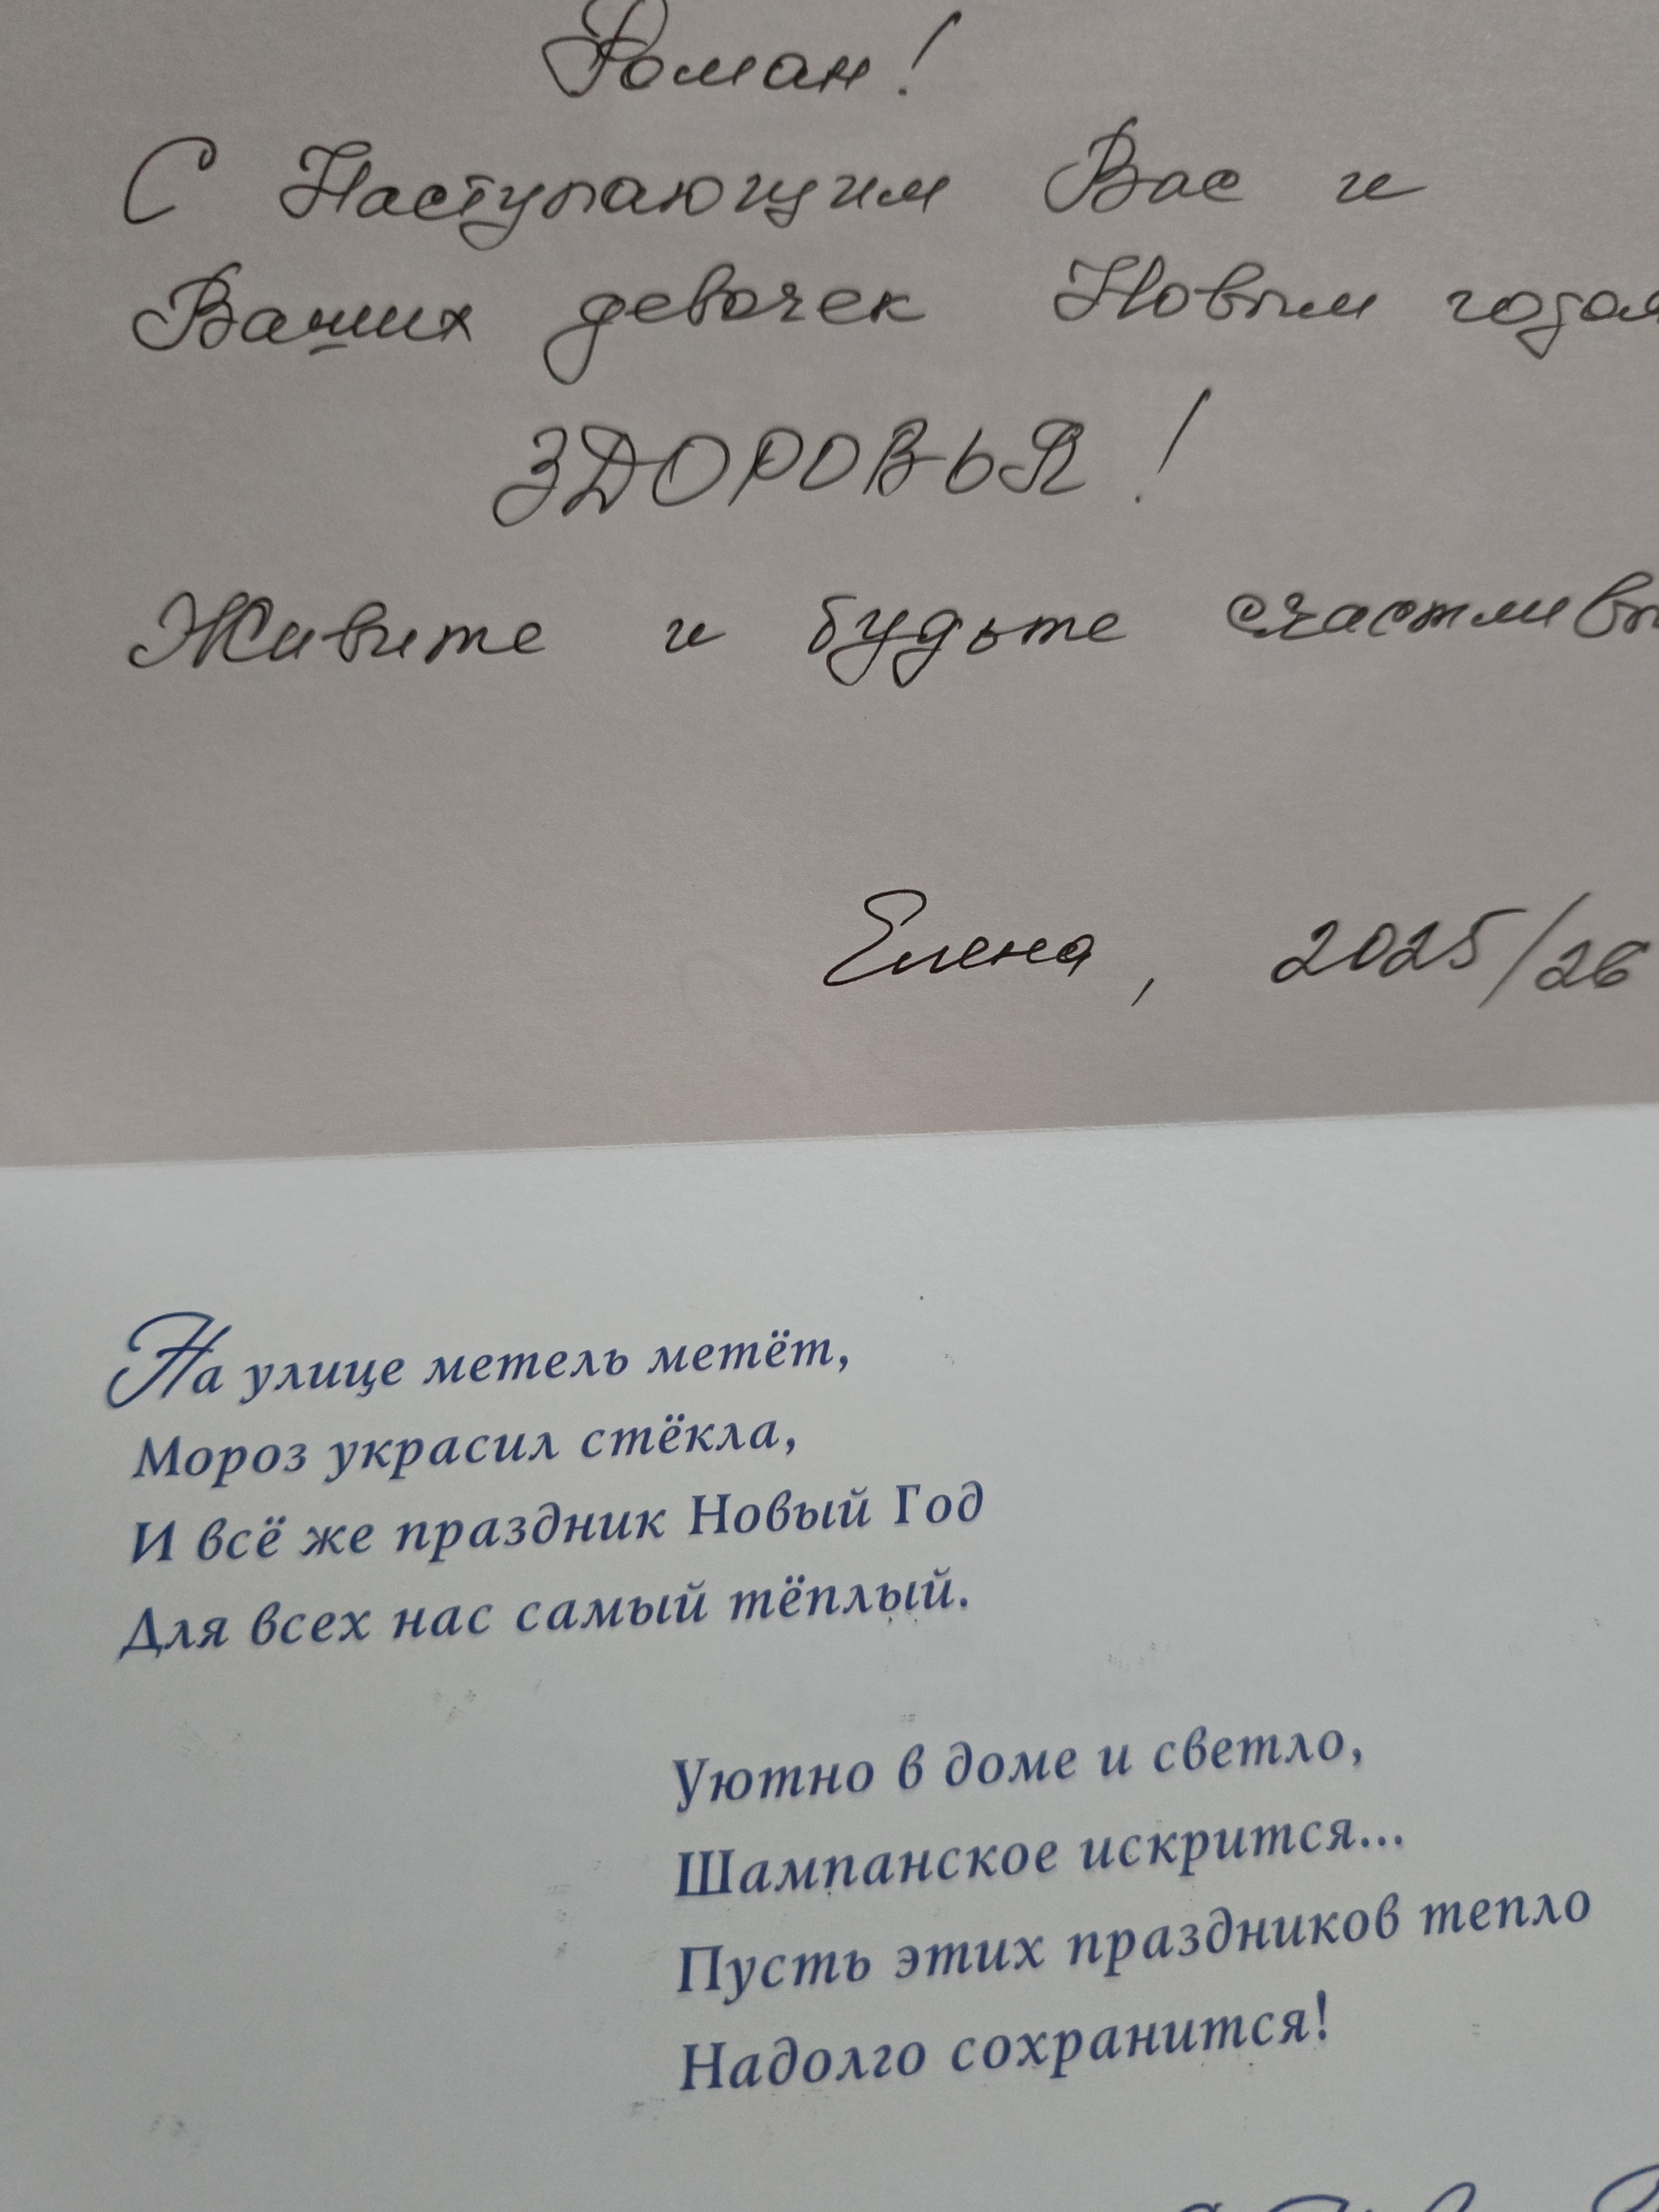 Роман!
С Наступающим Вас и
Ваших девочек Новым годом
ЗДОРОВЬЯ!
Живите и будьте счастливы
Елена, 2025/26
На улице метель метёт,
Мороз украсил стёкла,
И всё же праздник Новый Год
Для всех нас самый тёплый.
Уютно в доме и светло,
Шампанское искрится...
Пусть этих праздников тепло
Надолго сохранится!